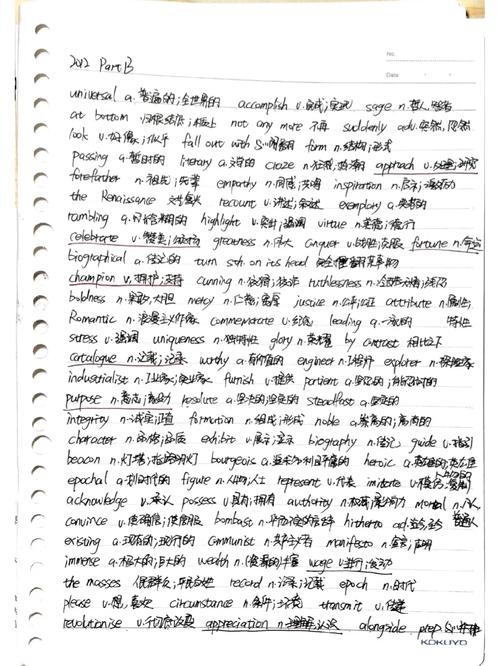 No.
Date
2012 Part B
universal a. 普遍的;全世界的 accomplish v.完成;实现 sage n.哲人,智者
at bottom 归根结底;本质上 not any more 不再 suddenly adv.突然,忽然
look v.好像;似乎 fall out with sb.闹翻 form n.结构;形式
passing a.暂时的 literary a.文学的 craze n.狂热,热潮 approach v.处理;研究
forefather n.祖先;先辈 empathy n.同感;共鸣 inspiration n.启示;
the Renaissance 文艺复兴 recount v.讲述;叙述 exemplary a.典范的
rambling a. highlight v.突出;强调 virtue n.美德;德行
celebrate v.赞美; greatness n.伟大 conquer v.战胜;征服 fortune n.命运
biographical a.传记的 turn sth. on its head
champion v.拥护;支持 cunning n.狡猾;狡诈 ruthlessness n.
boldness n.果敢;大胆 mercy n.仁慈;宽厚 justice n.公平;公正 attribute n.属性;
特性
Romantic n.浪漫主义作家 commemorate v.纪念 leading a.一流的
stress v.强调 uniqueness n.独特性 glory n.荣耀 by contrast 相比之下
catalogue n.记载;记录 worthy a.有价值的 engineer n.工程师 explorer n.探险家
industrialist n.工业家;实业家 furnish v.提供 patient a.坚忍的;
purpose n.意志; resolute a.坚决的;坚定的 steadfast a.坚定的
integrity n.诚实;正直 formation n.组成;形式 noble a.崇高的;高尚的
character n.品格;品质 exhibit v.展示;显示 biography n.传记 guide v.指引
beacon n.灯塔;指路明灯 bourgeois a. heroic a.
epochal a.划时代的 figure n.人物;人士 represent v.代表 imitate v.
acknowledge v.承认 possess v.具有;拥有 authority n. mortal n.人,
普通人
convince v.使确信;使信服 bombast n. hitherto ad.迄今
existing a.现存的;现行的 communist n.共产主义者 manifesto n.宣言;声明
immense a.极大的;巨大的 wealth n. wage v.进行;发动
the masses record n.记录;记载 epoch n.时代
please v.愿,喜欢 circumstance n.条件; transmit v.传递
revolutionise v. appreciation n.理解;认识 alongside prep.
KOKUYO